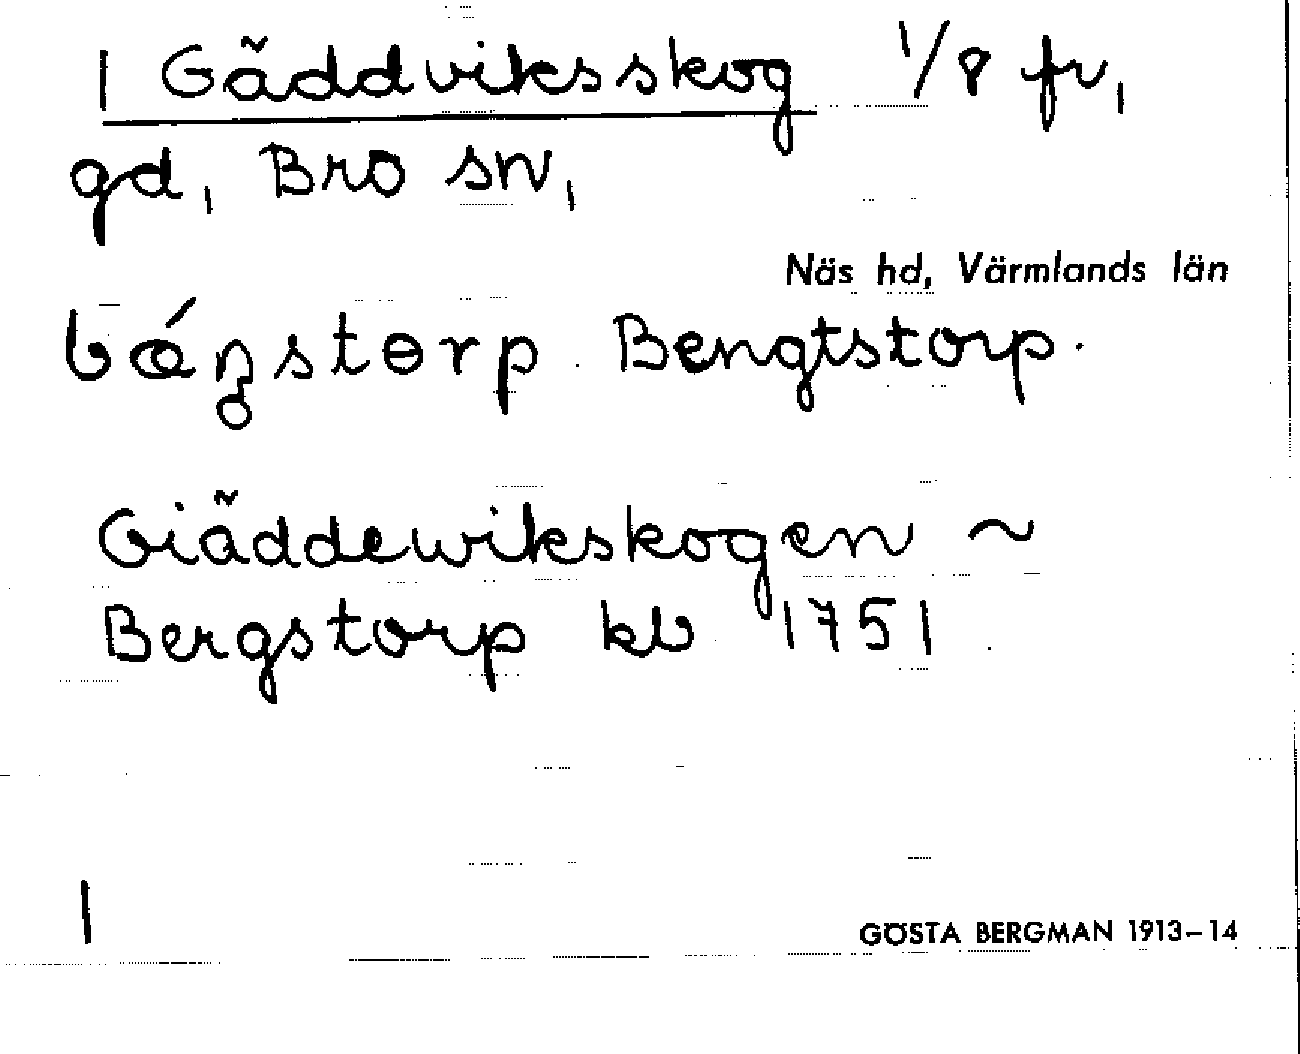 1 Gäddviksskog 1/8 fr,
gd, Bro sn,
Näs hd, Värmlands län
Bengtstorp.
Giäddewikskogen ~
Bergstorp kb 1751
1
GÖSTA BERGMAN 1913-14